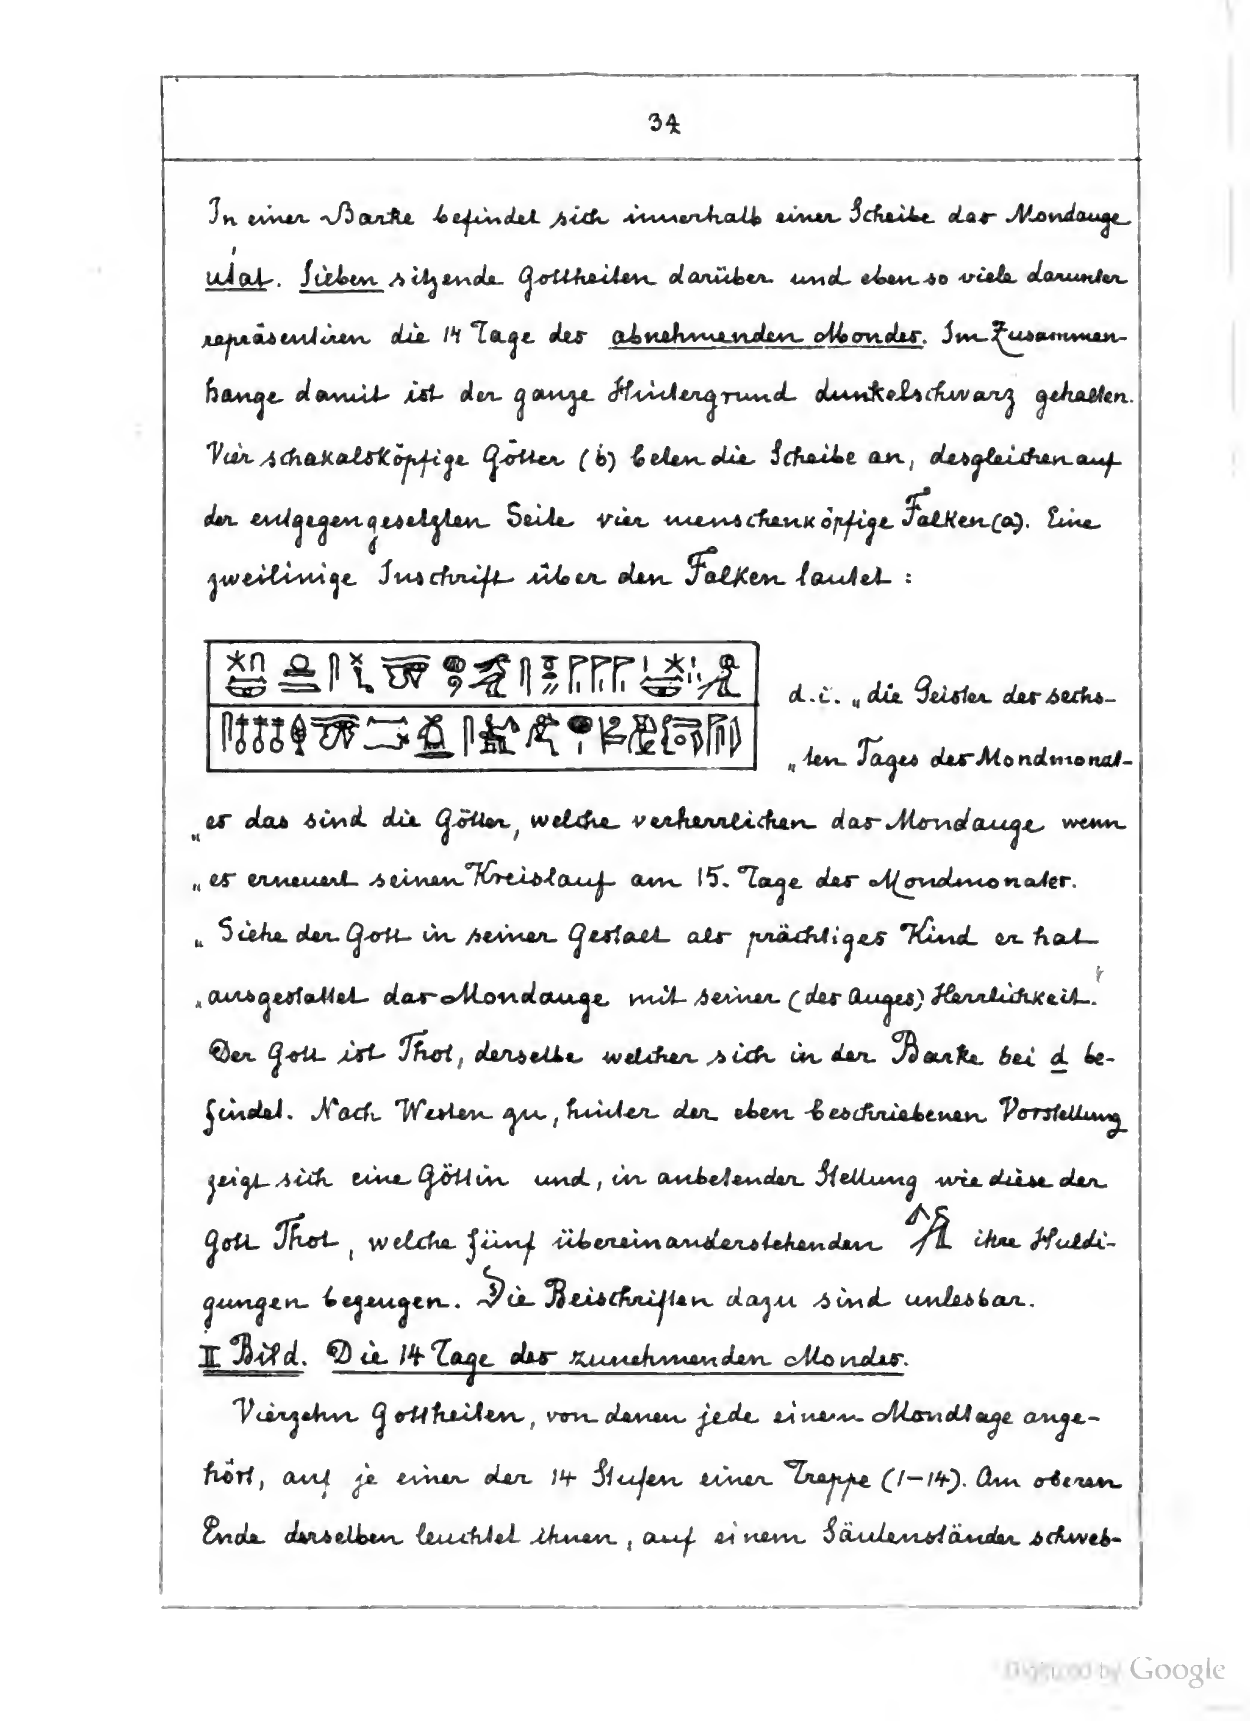 34
In einer Barke befindet sich innerhalb einer Scheibe das Mondauge
uṯat. Sieben sitzende Gottheiten darüber und eben so viele darunter
repräsentiren die 14 Tage des abnehmenden Mondes. Im Zusammen-
hange damit ist der ganze Hintergrund dunkelschwarz gehalten.
Vier schakalsköpfige Götter (b) beten die Scheibe an, desgleichen auf
der entgegengesetzten Seite vier menschenköpfige Falken (a). Eine
zweilinige Inschrift über den Falken lautet :
d. i. „die Geister des sechs-
„ten Tages des Mondmonat-
„es das sind die Götter, welche verherrlichen das Mondauge wenn
„es erneuert seinen Kreislauf am 15. Tage des Mondmonates.
„Siehe der Gott in seiner Gestalt als prächtiges Kind er hat
„ausgestattet das Mondauge mit seiner (des Auges) Herrlichkeit."
Der Gott ist Thot, derselbe welcher sich in der Barke bei d be-
findet. Nach Westen zu, hinter der eben beschriebenen Vorstellung
zeigt sich eine Göttin und, in anbetender Stellung wie diese der
Gott Thot, welche fünf übereinanderstehenden ihre Huldi-
gungen bezeugen. Die Beischriften dazu sind unlesbar.
II Bild. Die 14 Tage des zunehmenden Mondes.
Vierzehn Gottheiten, von denen jede einem Mondtage ange-
hört, auf je einer der 14 Stufen einer Treppe (1–14). Am oberen
Ende derselben leuchtet ihnen, auf einem Säulenständer schweb-
Digitized by Google